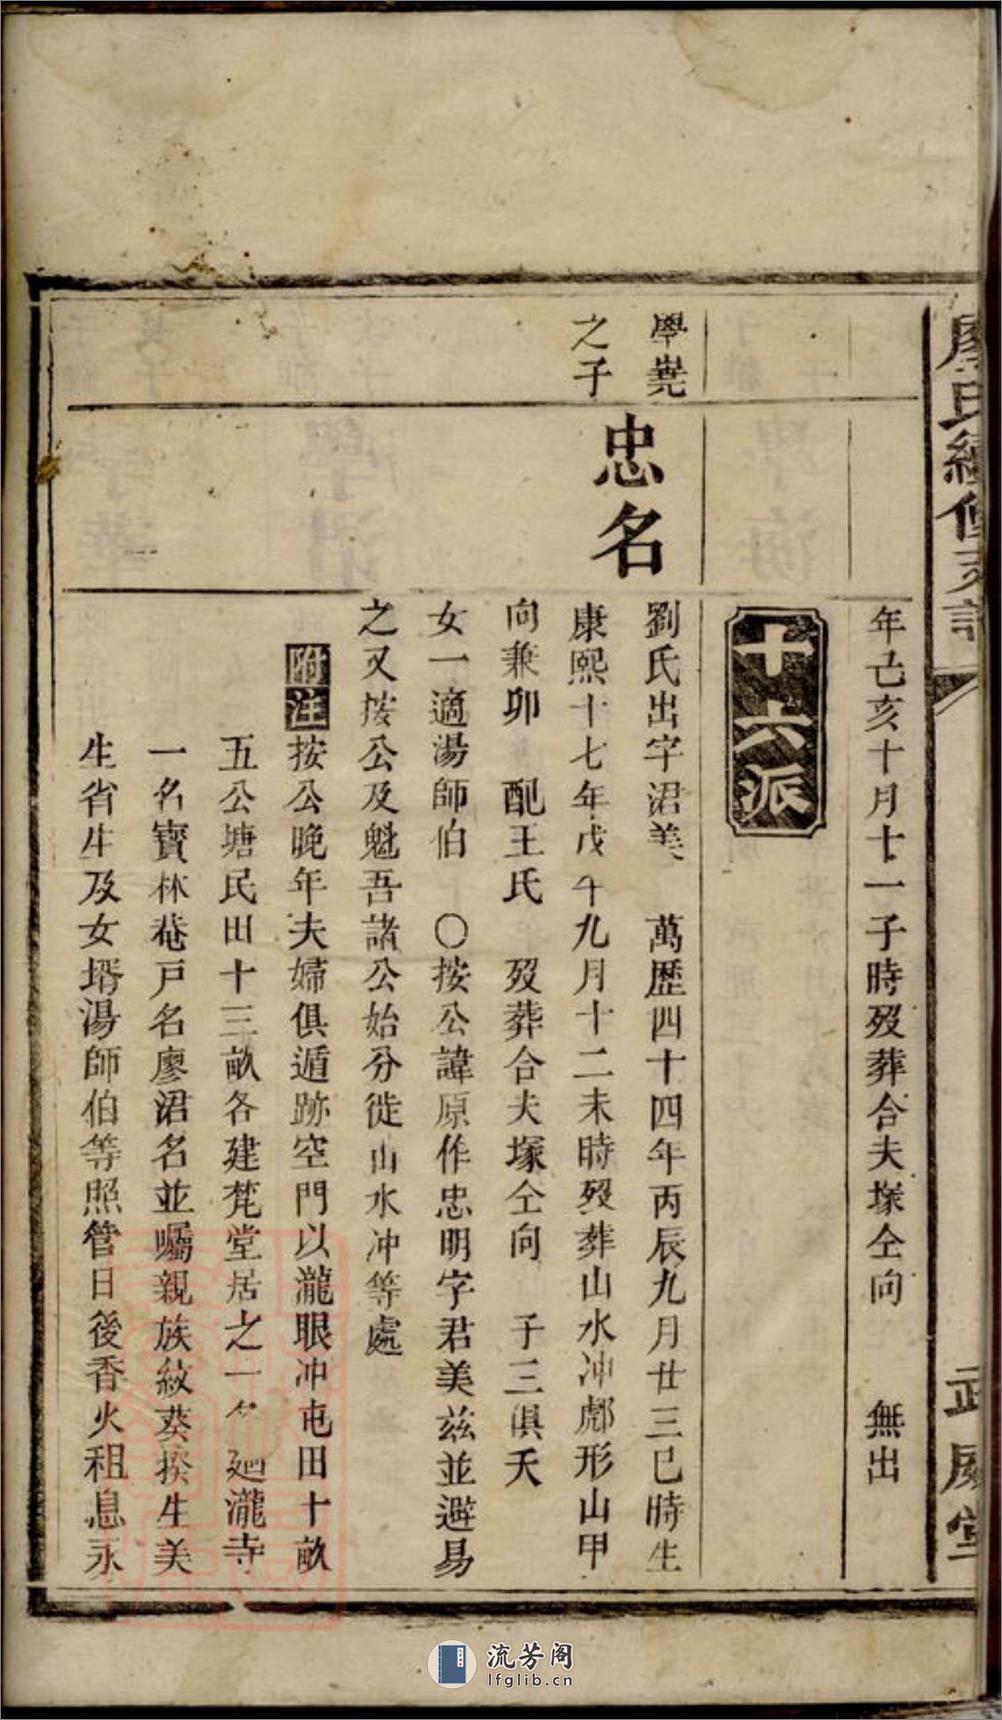 廖氏續修支譜
武威堂
年己亥十月十一子時歿葬合夫塚仝向 無出
十六派
學堯
之子
忠名
劉氏出字沼美 萬歷四十四年丙辰九月廿三巳時生
康熙十七年戊午九月十二未時歿葬山水冲鄅形山甲
向兼卯 配王氏 歿葬合夫塚仝向 子三俱夭
女一適湯師伯 〇按公諱原作忠明字君美茲並避易
之又按公及魁吾諸公始分徙山水冲等處
附注按公晚年夫婦俱遁跡空門以瀧眼冲屯田十畝
五公塘民田十三畝各建梵堂居之一名廻瀧寺
一名寳林菴戸名廖沼名並囑親族紋葵揆生美
生省生及女壻湯師伯等照管日後香火租息永
流芳阁
lfglib.cn